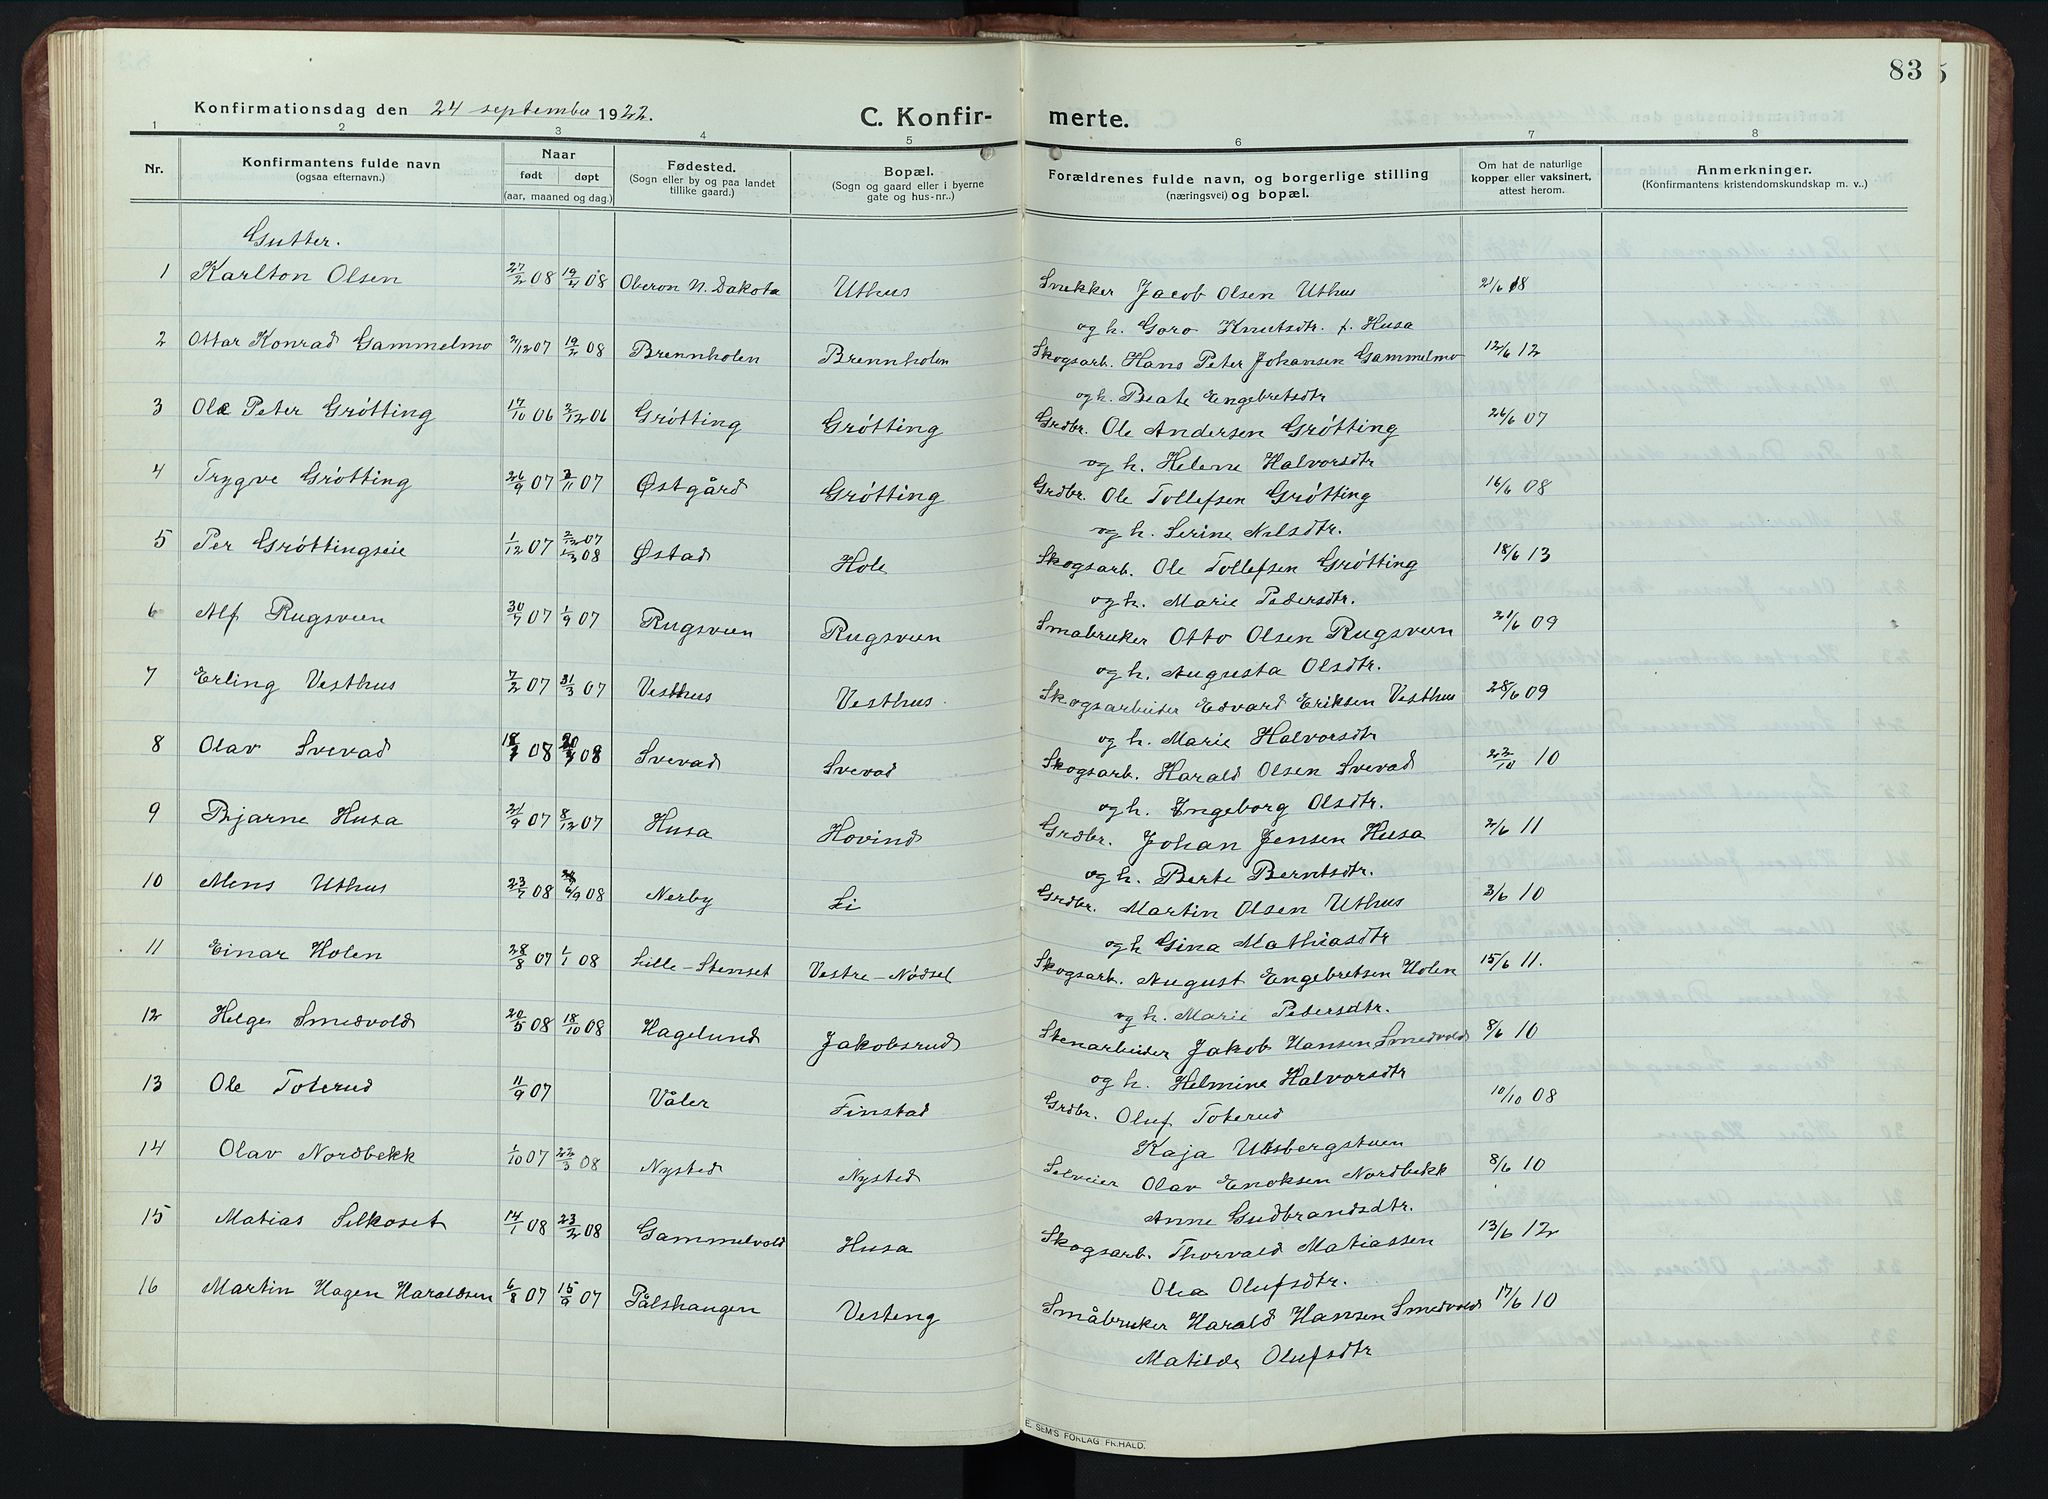 83
Konfirmationsdag den 24 september 1922.
C. Konfirmerte.
1 2 3 4 5 6 7 8
Nr. Konfirmantens fulde navn (ogsaa efternavn.) Naar født døpt (aar, maaned og dag.) Fødested. (Sogn eller by og paa landet tillike gaard.) Bopæl. (Sogn og gaard eller i byerne gate og hus-nr..) Forældrenes fulde navn, og borgerlige stilling (næringsvei) og bopæl. Om hat de naturlige kopper eller vaksinert, attest herom. Anmerkninger. (Konfirmantens kristendomskundskap m. v..)
Gutter.
1 Karlton Olsen 27/2 08 19/4 08 Oberon N. Dakota Uthus Snekker Jacob Olsen Uthus 21/6 18
og h. Goro Knutsdtr. f. Husa
2 Ottar Konrad Gammelmo 2/12 07 19/2 08 Brennholen Brennholen Skogsarb. Hans Peter Johansen Gammelmo 12/6 12
og h. Beate Engebretsdtr
3 Ole Peter Grótting 17/10 06 2/12 06 Grótting Grótting Grdbr. Ole Andersen Grótting 26/6 07
og h. Helene Halvorsdtr
4 Trygve Grótting 26/9 07 3/11 07 Østgård Grótting Grdbr. Ole Tollefsen Grótting 16/6 08
og h. Serine Nilsdtr.
5 Per Gróttingseie 1/12 07 2/12 07 1/3 08 Østad Hole Skogsarb. Ole Tollefsen Grótting 18/6 13
og h. Marie Pedersdtr.
6 Alf Rugsveen 30/7 07 1/9 07 Rugsveen Rugsveen Småbruker Otto Olsen Rugsveen 21/6 09
og h. Augusta Olsdtr.
7 Erling Vesthus 7/2 07 31/3 07 Vesthus Vesthus Skogsarbeider Edvard Eriksen Vesthus 28/6 09
og h. Marie Halvorsdtr
8 Olav Svevad 08 08 Svevad Svevad Skogsarb. Harald Olsen Svevad 22/10 10
og h. Ingeborg Olsdtr.
9 Bjarne Husa 21/9 07 8/12 07 Husa Hovind Grdbr. Johan Jensen Husa 2/6 11
og h. Berte Berntsdtr.
10 Mens Uthus 23/7 08 08 Nerby Li Grdbr. Martin Olsen Uthus 3/6 10
og h Gina Mathiasdtr
11 Einar Holen 28/8 07 1/1 08 Lille-Stenset Vestre-Nódsel Skogsarb. August Engebretsen Holen 15/6 11.
og h. Marie Pedersdtr.
12 Helge Smedvold 20/5 08 18/10 08 Hagelund Jakobsrud Stenarbeider Jakob Hansen Smedvold 8/6 10
og h. Helmine Halvorsdtr
13 Ole Toterud 11/9 07 Våler Finstad Grdbr. Oluf Toterud 10/10 08
Kaja Utsbergstuen
14 Olav Nordbekk 1/10 07 22/3 08 Nysted Nysted Selveier Olav Enoksen Nordbekk 8/6 10
Anne Gudbrandsdtr.
15 Matias Silkoset 14/1 08 23/2 08 Gammelvold Husa Skogsarb. Thorvald Matiassen 13/6 12
Olea Olufsdtr.
16 Martin Hagen Haraldsen 6/8 07 15/9 07 Pålshaugen Vesteng Småbruker Harald Hansen Smedvold 17/6 10
Matilde Olufsdtr
E. SEM'S FORLAG FR.HALD.